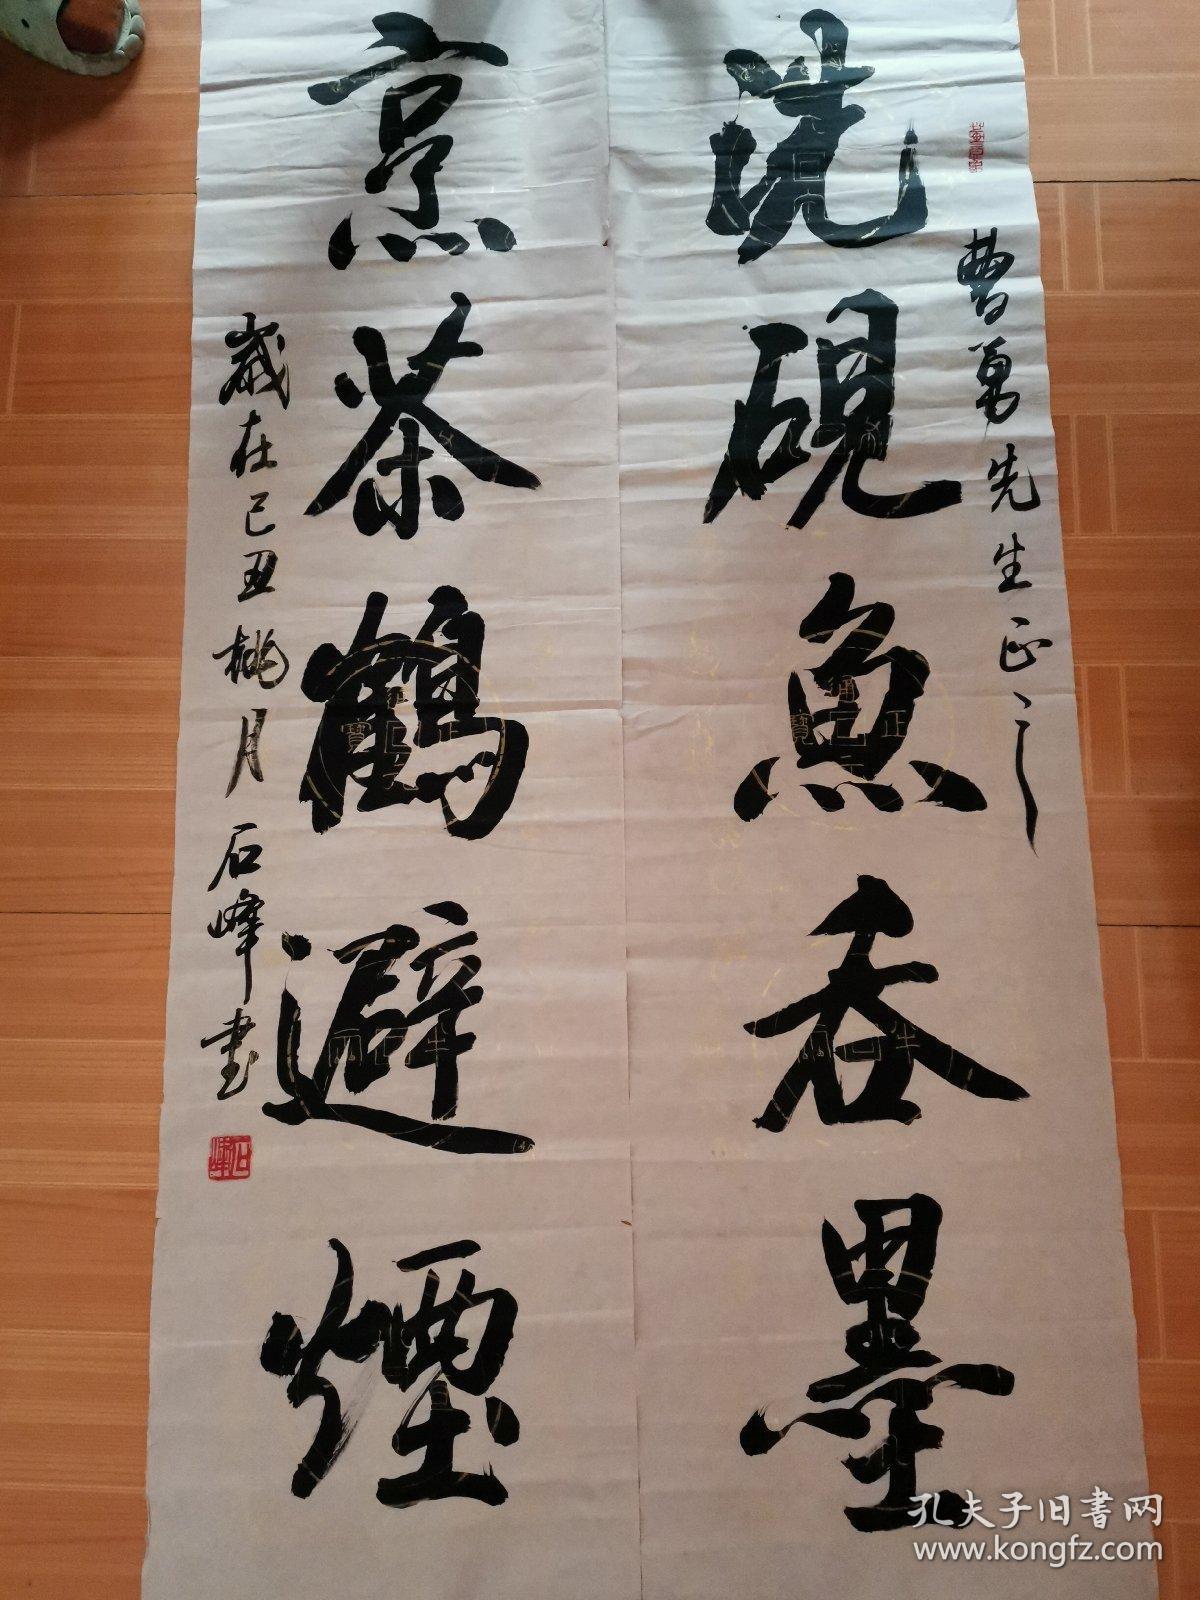 曹勇先生正之
洗砚鱼吞墨
烹茶鹤避煙
歳在己丑桃月石峰书
石峰
孔夫子旧书网
www.kongfz.com